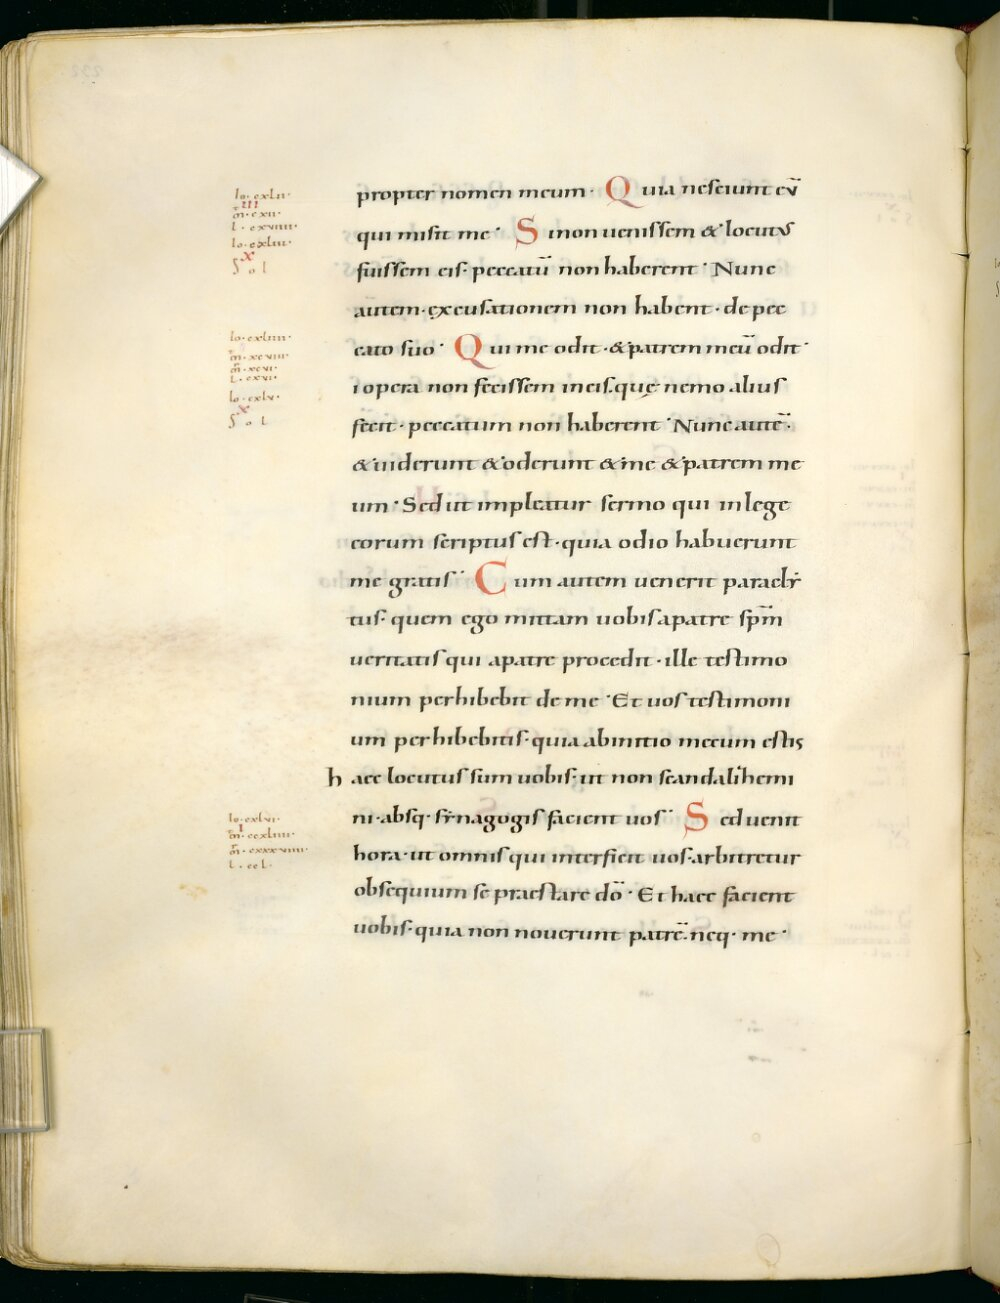 io · cxlii ·
iii
m̄ · cxii ·
l · cxviiii ·
io · cxliii ·
x
S o l
propter nomen meum · Quia nesciunt eū
qui misit me · Si non uenissem & locutus
fuissem eis · peccatū non haberent · Nunc
autem · excusationem non habent · de pec
cato suo · Qui me odit · & patrem meū odit ·
io · cxliiii ·
m̄ · xcviii ·
m̄ · xcvi ·
l · cxvi ·
io · cxlv ·
x
S o l
i opera non fecissem in eis · quę nemo alius
fecit · peccatum non haberent · Nunc autē ·
& uiderunt & oderunt & me & patrem me
um · Sed ut impleatur sermo qui in lege
eorum scriptus est · quia odio habuerunt
me gratis · Cum autem uenerit paracly
tus · quem ego mittam uobis a patre sp̄m
ueritatis qui a patre procedit · ille testimo
nium perhibebit de me · Et uos testimoni
um perhibebitis · quia ab initio mecum estis
haec locutus sum uobis · ut non scandalihemi
ni · absq · synagogis facient uos · Sed uenit
io · cxlvi ·
i
m̄ · ccxliiii ·
m̄ · cxxxviiii ·
l · ccl ·
hora · ut omnis qui interficit uos · arbitretur
obsequium se praestare dō · Et haec facient
uobis · quia non nouerunt patrē · neq · me ·